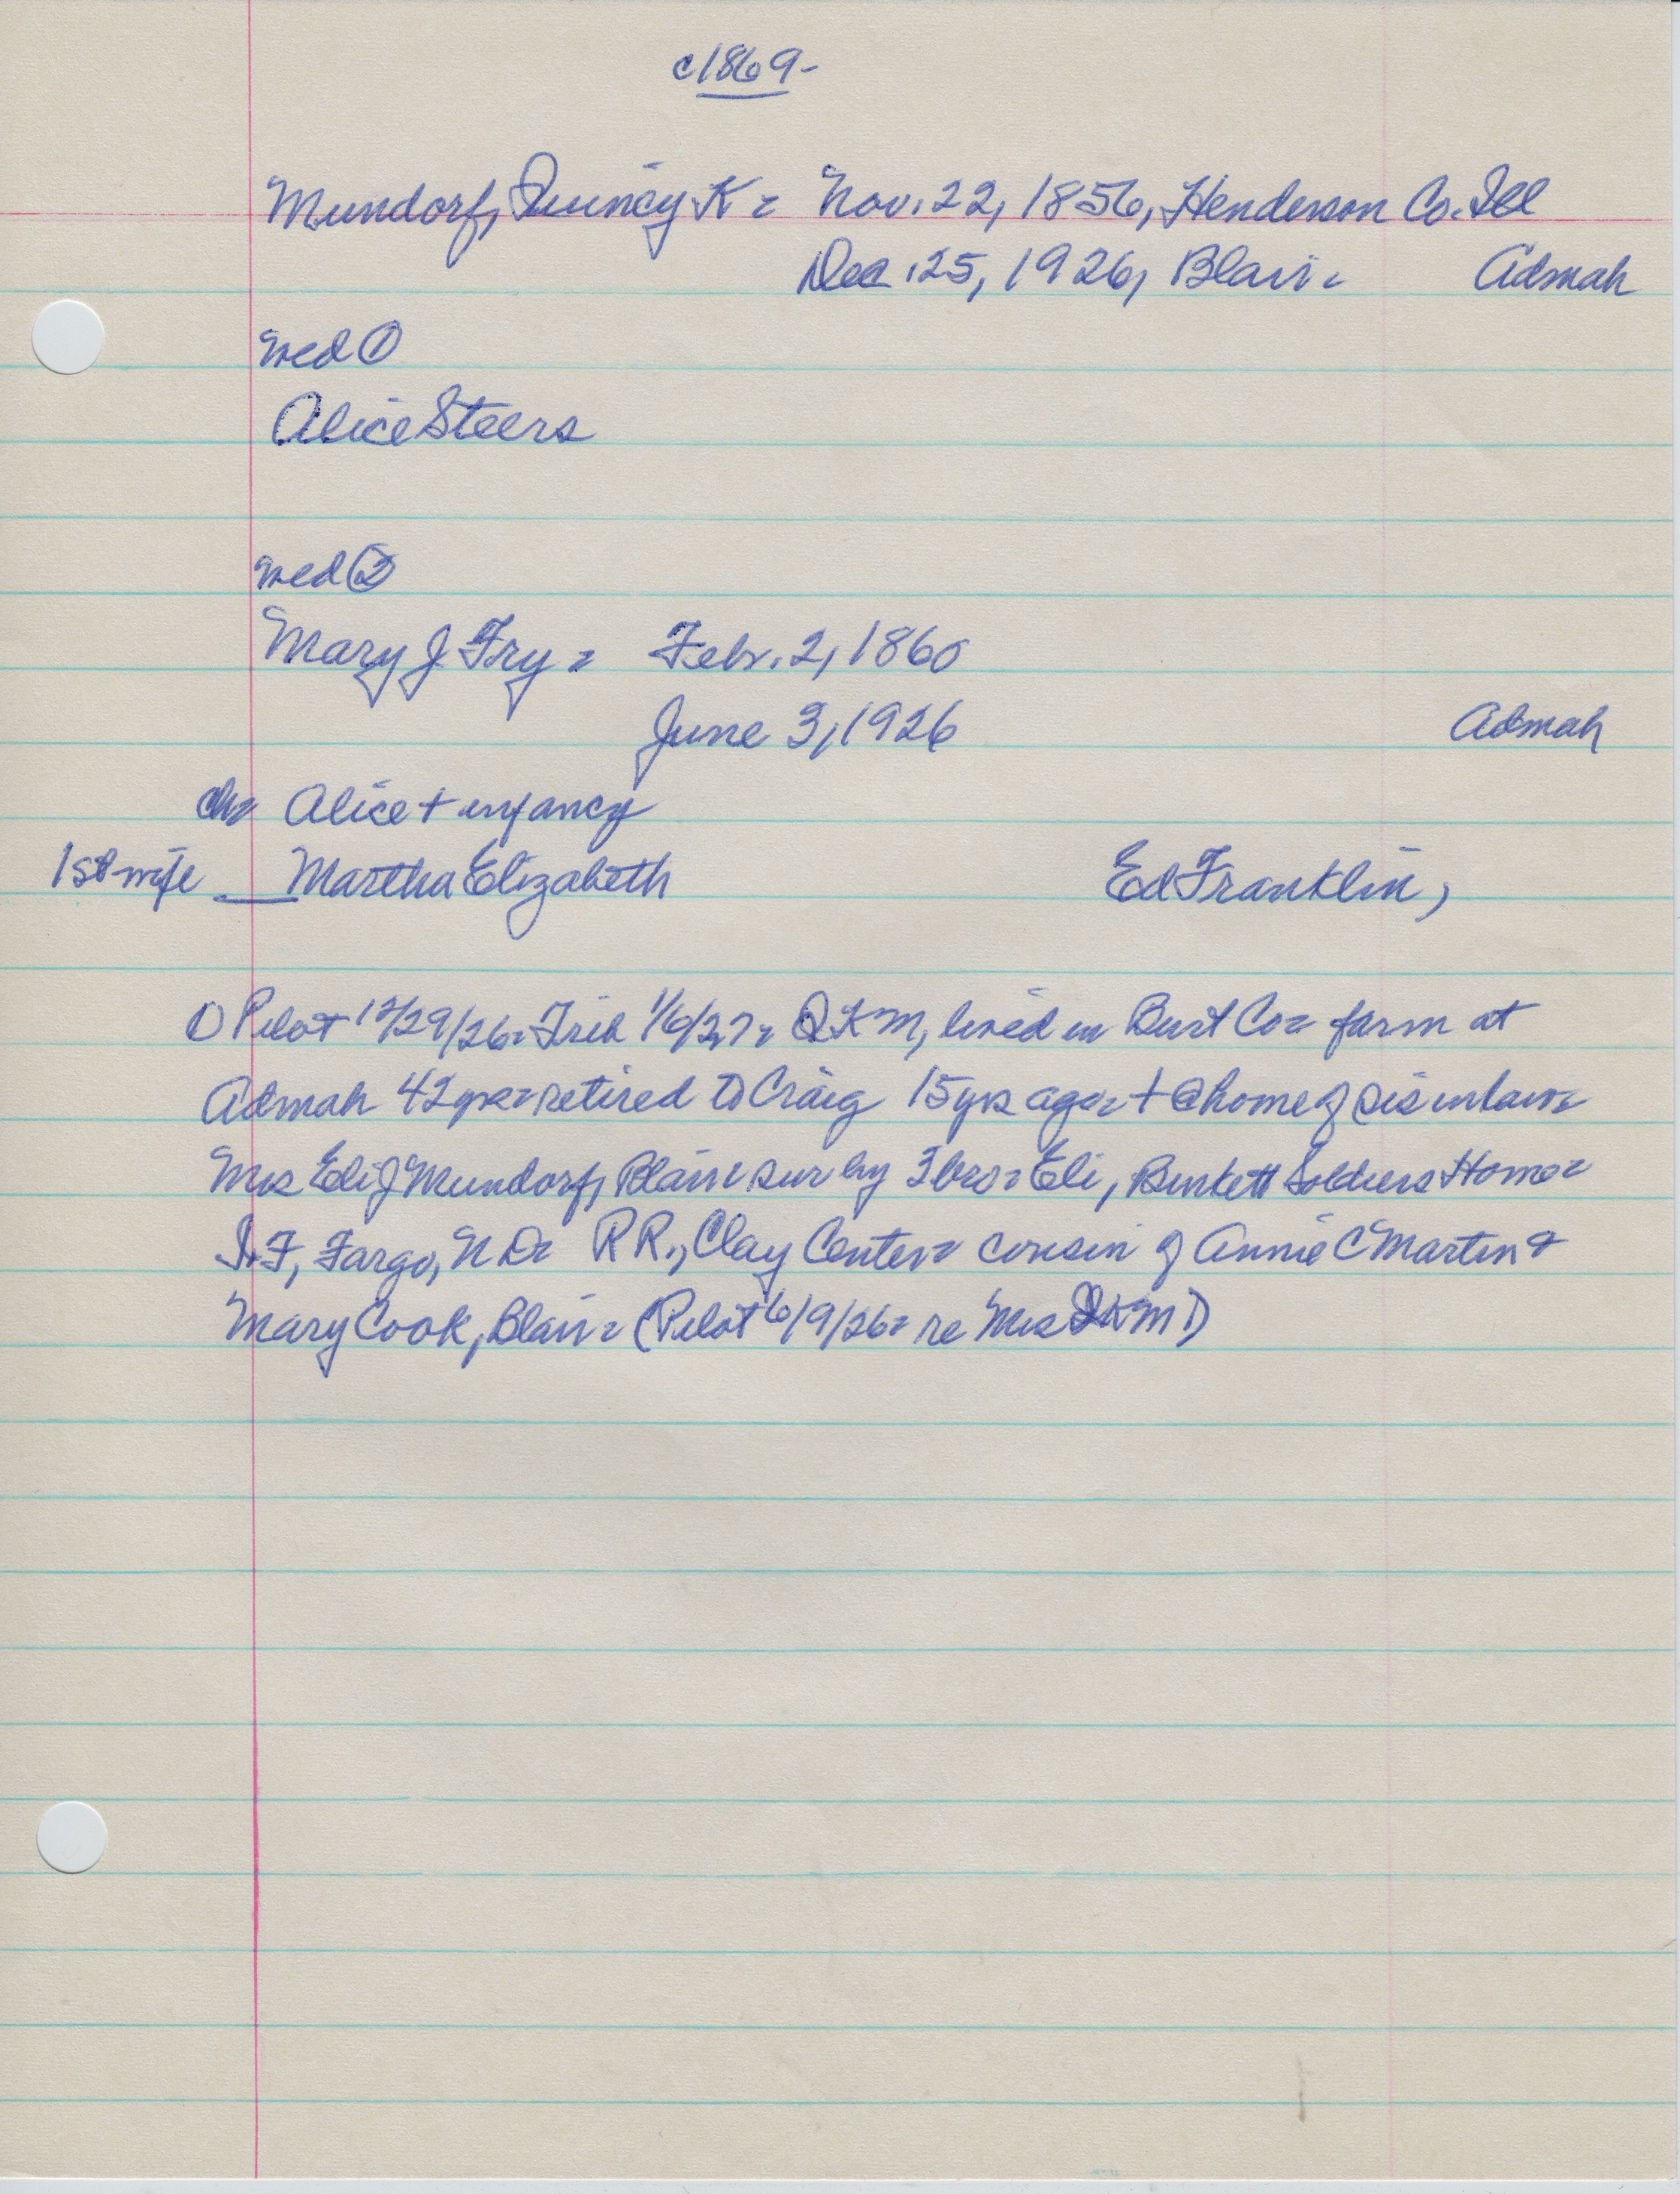 c1869-
Mundorf, Quincy K = Nov. 22, 1856, Henderson Co. Ill
Dec. 25, 1926, Blair = Admah
med ①
Alice Steers
med ②
Mary J Fry = Febr. 2, 1860
June 3, 1926 Admah
ch= Alice + infancy
1st wife Martha Elizabeth Ed Franklin,
① Pilot 12/29/26 = Trib 1/6/27 = QKM, lived in Burt Co = farm at
Admah 42 yrs = retired to Craig 15 yrs ago = + @ home of sis in law =
Mrs Eli J Mundorf, Blair = sur by 3 bro = Eli, Burkett Soldiers Home =
F, Fargo, N D = R R., Clay Center = cousin of Annie C Martin &
Mary Cook, Blair = (Pilot 6/9/26 = re Mrs QKM)